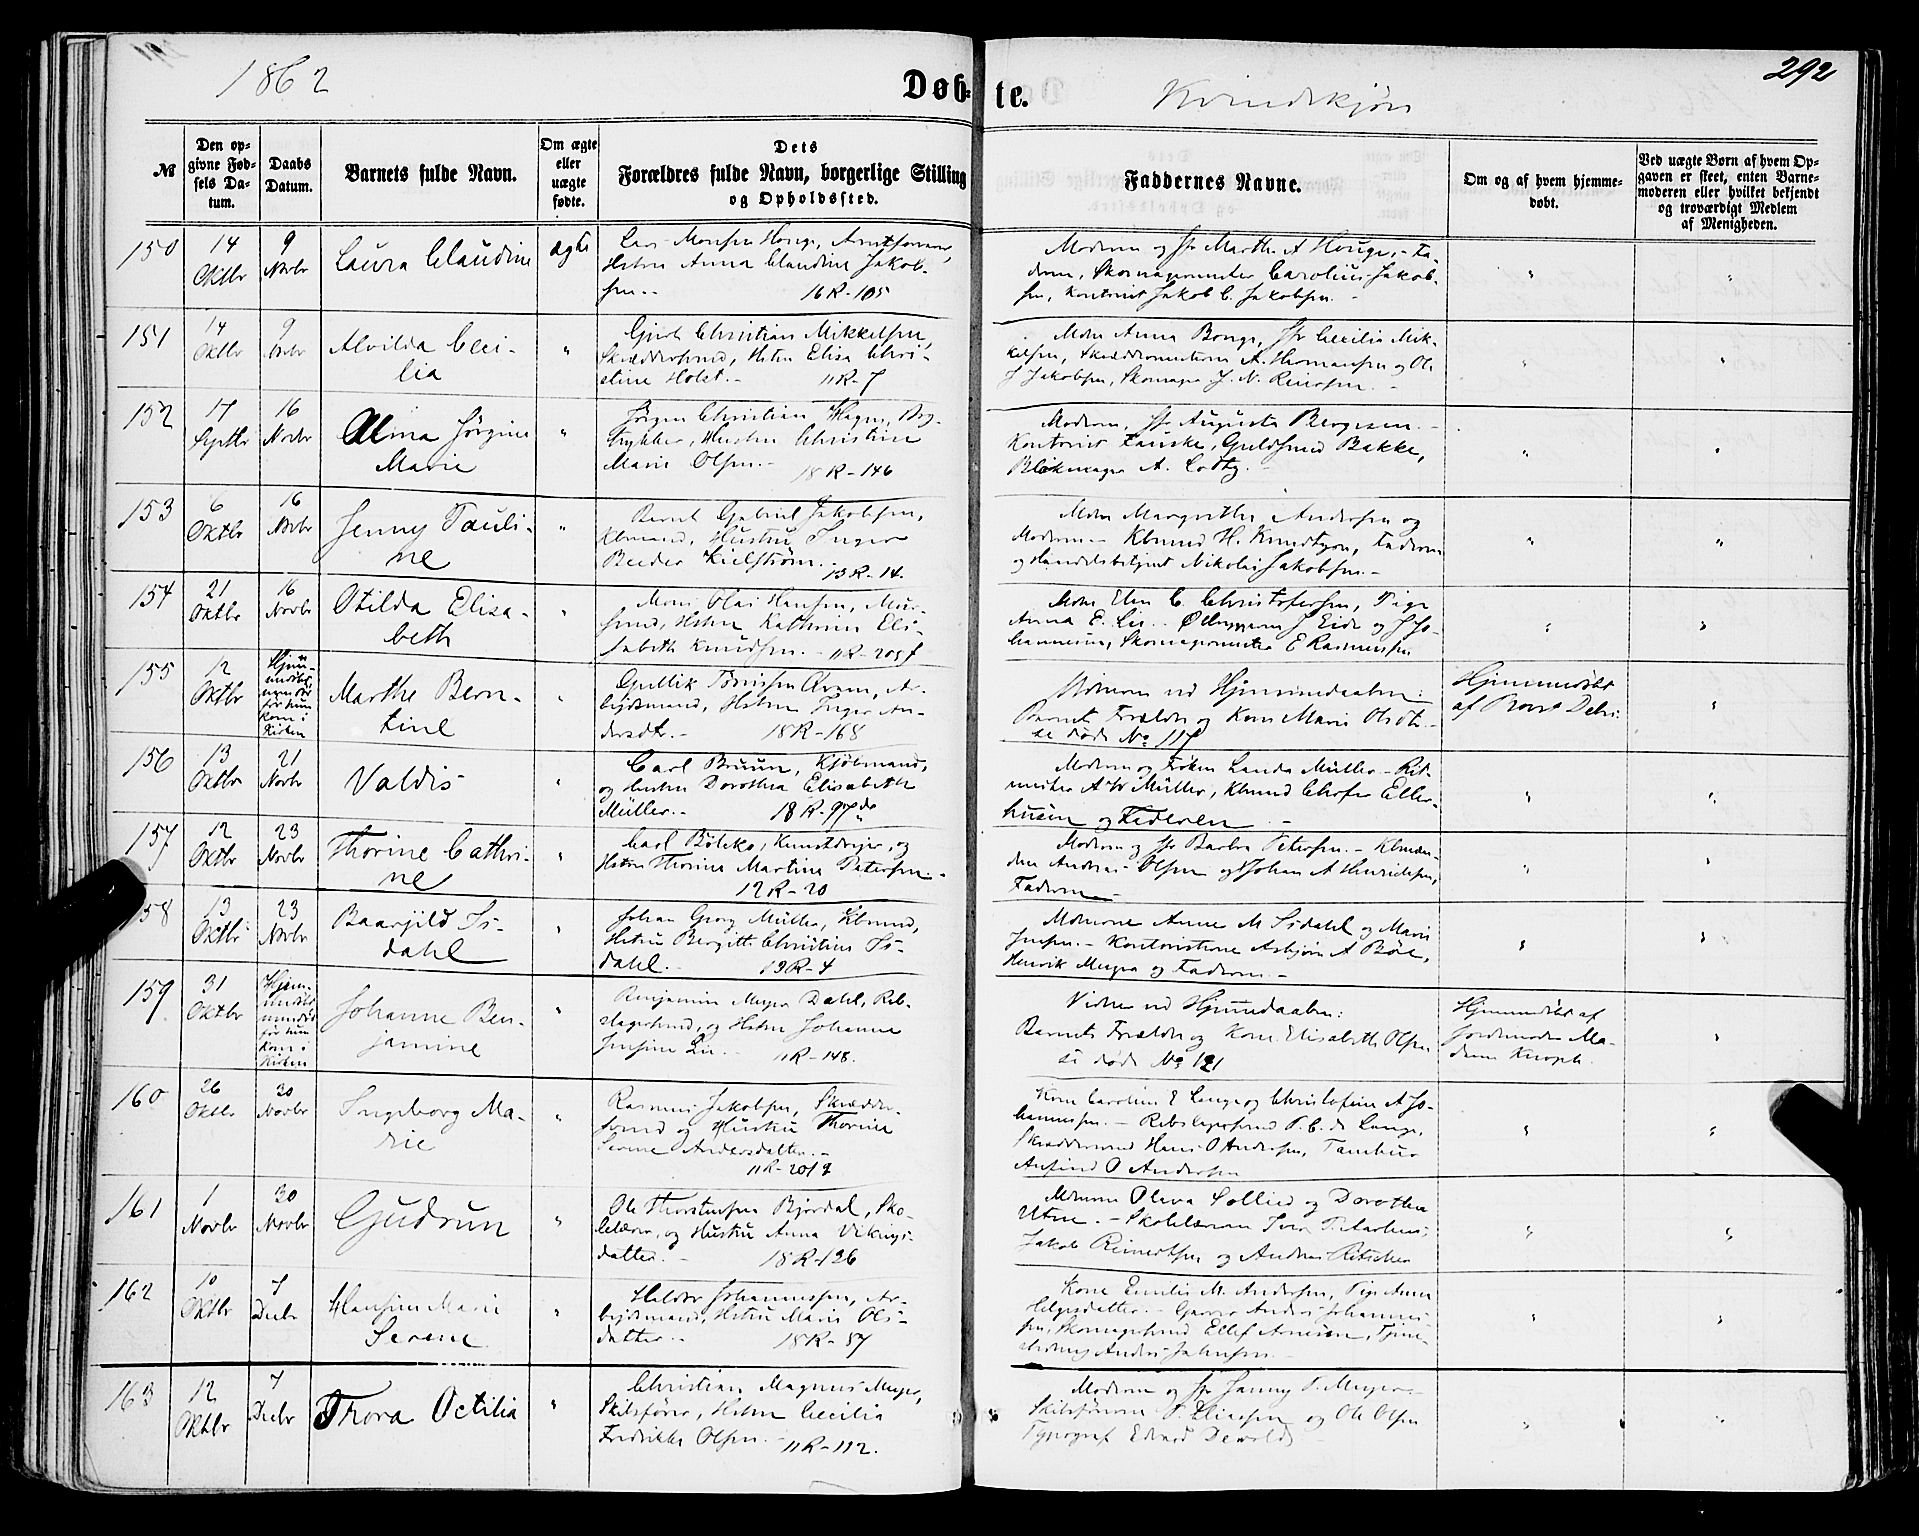 1862
Døbte.
Kvindekjøn
292
№
Den opgivne Fødsels Datum.
Daabs Datum.
Barnets fulde Navn.
Om ægte eller uægte fødte.
Dets Forældres fulde Navn, borgerlige Stilling og Opholdssted.
Faddernes Navne.
Om og af hvem hjemmedøbt.
Ved uægte Børn af hvem Opgaven er skeet, enten Barnemoderen eller hvilket bekjendt og troværdigt Medlem af Menigheden.
150
14 Oktbr
9 Novbr
Laura Claudine
ægte
Hstru Anna Claudine Jakob-
sen.-
16 R-105
Moderen og Marthe A Houge, - Fa-
deren, Skomagermester Carolius Jakob-
sen, Kontorist Jakob C. Jakobsen. -
151
14 Oktbr
9 Novbr
Alvilda Ceci-
lia
"
Gjert Christian Mikkelsen,
Skræddersvend, Hstru Elisa Chri-
stine Holst.-
11R-7
Cecilia Mik-
kelsen, Skræddermestrene A. Hermansen og Ole
J Jakobsen, Skomager J. N. Reinssen. -
152
17 Septbr
16 Novbr
Alina Jørgine
Marie
"
Jørgen Christian Hagen, Bog-
trykker, Hustru Christine
Marie Olsen.-
18 R-146
Moderen, Augusta Bergesen. -
Kontorist Fauske, Guldsmed Bakke,
Blikmager A.
153
6 Oktbr
16 Novbr
Jenny Pauli-
ne
"
Bernt Gabriel Jakobsen,
Kbmand, Hustru Inger
Beeder Kielstrøm.-
13R-14.
Mdm Margrethe Andersen og
Moderen - Kbmand H. Knudtzon, Faderen
og Handelsbetjent Nikolai Jakobsen.-
154
21 Oktbr
16 Novbr
Otilda Elisa-
beth
"
Mons Olai Hansen, Mur-
svend, Hstru Kathrine Eli-
sabeth Knudsen.-
11R-205
Mdm Elen C. Christofersen, Pige
Anna E. Lie. - J Eide og J Jo-
hannessen, Skomagermester E Rasmussen
155
12 Oktbr
Hjem-
medøbt,
før hun
kom i
Kirken
Marthe Bern-
tine
"
Gullik Tønnsen Aven, Ar-
beidsmand, Hstru Inger An-
dersdtr.-
18R-168
Vidnerne ved Hjemmedaaben:
Barnets Forældre og Kone Marie Olsdtr.-
se døde No 117
Hjemmedøbt
156
13 Oktbr
21 Novbr
Valdis
"
Carl Bruun, Kjøbmand,
og Hustru Dorothea Elisabeth
Müller.-
18 R-97
Moderen og Frøken Landa Müller - Rit-
mester A W Müller, Kbmand Chrisfr Eller-
husen og Faderen -
157
12 Oktbr
23 Novbr
Thorine Cathri-
ne
"
Carl Bölcko, Kunstdreier, og
Hstru Thorine Martine Petersen.-
12R-20
Moderen og Barbra Petersen. - Kbmæn-
dene Andreas Olsen og Johan A Henrichsen,
Faderen
158
13 Oktbr
23 Novbr
Baarjild Is-
dahl
"
Johan Georg Müller, Kbmand,
Hstru Bergitte Christine Is-
dahl.-
13R-4
Madmerne Anne M Isdahl og Marie
Jensen.- Kontoristerne Asbjørn A Bøe,
Henrik Meyer og Faderen.-
159
31 Oktbr
Hjem-
medøbt
før hun
kom i
Kirken
Johanne Ben-
jamine
"
Benjamin Meyer Dahl, Reb-
slagersvend, og Hstru Johanne
Jensine Lie.-
11R-148.
Vidner ved Hjemmedaaben:
Barnets Forældre og Kone Elisabeth Olsen
se døde No 121
Hjemmedøbt af
Jordemoder Ma-
dam Knoph.
160
26 Oktbr
30 Novbr
Ingeborg Ma-
rie
"
Rasmus Jakobsen, Skrædder-
svend og Hustru Thorine
Serene Andersdatter.-
11R-201
Kone Caroline E Lange og Christofine A Jo-
hannessen.- Rebslagersvend P. C. de Lange,
Skræddersvend Hans O Andersen, Tambur
Anfind O Andersen
161
1 Novbr
30 Novbr
Gudrun
"
Ole Thorstensen Bjordal, Sko-
lelærer, og Hustru Anna Vikings-
datter.-
18R-136
Olava Sollied og Dorothea
Utne.- Skolelærerne Iver T. Aarhus,
Jakob Reinertsen og Andreas Ritscher
162
10 Oktbr
7 Decbr
Hansine Marie
Serene
"
Heldor Johannessen, Ar-
beidsmand, Hstru Marie Ols-
datter.-
18R-57
Kone Emilie M. Andersen, Pige Anna
Helgesdatter.- Garver Anders Johannes-
sen, Skomagersvend Ellef Arnesen, Tjene-
stedreng Anders Johnsen.-
163
12 Oktbr
7 Decbr
Thora Octilia
"
Christian Magnus Meyer,
Skibsfører, Hstru Cecilia
Fredrikke Olsen.-
11R-112.
Moderen og Janny P. Meyer.-
Skibsførerne P. Eliassen og Ole Olsen
Typograf Edvard Dewold